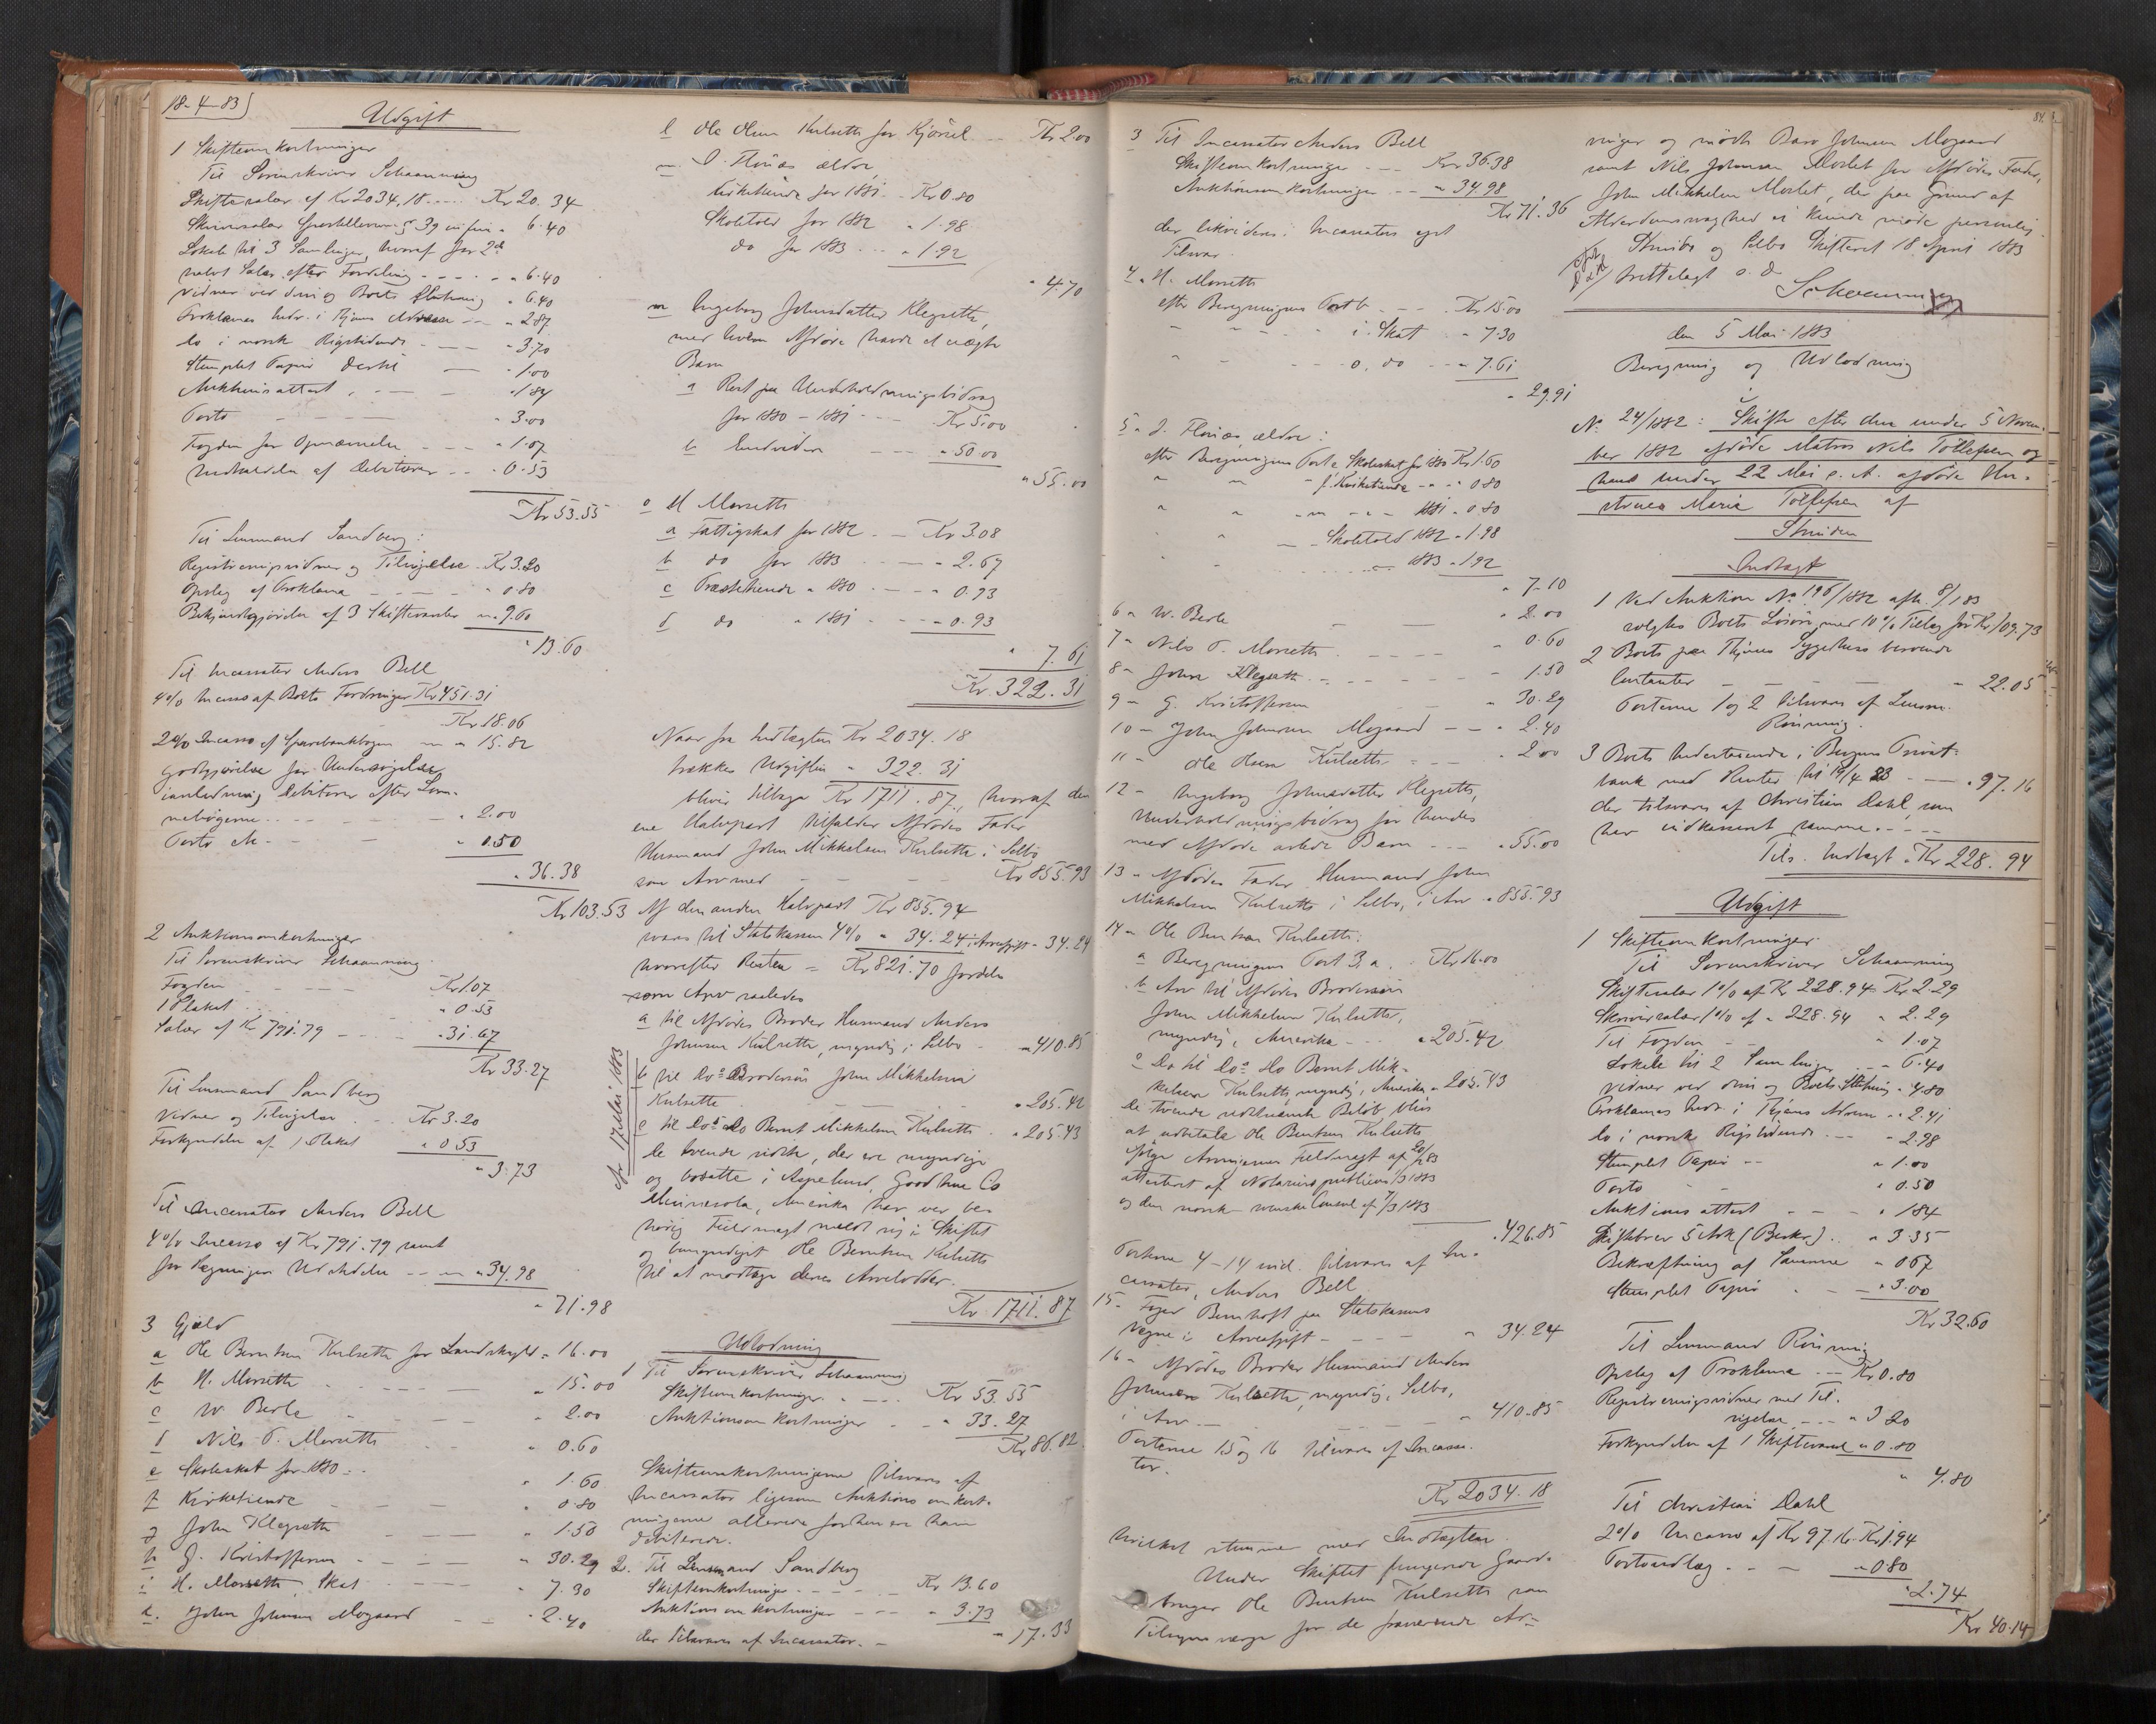 18-4-83
Udgift
1 Skifteomkostninger
Til Sorenskriver Schaanning
Skiftesalær af Kr 2034.18 .... Kr 20.34
Skriversalær " 6.40
Lokale til 3 Samlinger, hvoraf for 2de
halvt Salær efter Fordeling - - - " 6.40
Vidner ved dem og Boets Slutning " 6.40
Proklamas Indr. i Thjems - - " 2.87
do i norsk Rigstidende - - - " 3.70
Stemplet Papir dertil - " 1.00
Auktionsattest - - " 1.84
Porto - - - " 3.00
Fogden for Opnævnelse - - - " 1.07
Indkaldelse af Debitorer - - " 0.53
Kr 53.55
Til Lensmand Sandberg:
Registreringsvidner og Tilsigelse Kr 3.20
Opslag af Proklama - - - " 0.80
Bekjendtgjørelse af 3 Skiftesamler " 9.60
" 13.60
Til Incassator Anders Bell
4% Incasso af Boets Fordringer Kr 451.31
Kr 18.06
2% Incasso af Sparebankbogen " 15.82
Godtgjørelse for Undersøgelse
ianledning Debitorer efter
- - - " 2.00
Porto - " 0.50
" 36.38
Kr 103.53
2 Auktionsomkostninger
Til Sorenskriver Schaanning
Fogden - - - Kr 1.07
1 Plakat " 0.53
Salær af Kr 791.79 - - - " 31.67
Kr 33.27
Til Lensmand Sandberg
Vidner og Tilsigelse Kr 3.20
Forkyndelse af 1 Plakat " 0.53
" 3.73
Til Incassator Anders Bell
4% Incasso af Kr 791.79 samt
for Udstedelse - - " 34.98
" 71.98
3 Gjæld
a Ole Berntsen Kulseth for Landskyld " 16.00
b H. Morseth - - - " 15.00
c W. Berle " 2.00
d Nils P. Morseth " 0.60
e Skoleskat for 1880 - " 1.60
f Kirketiende " 0.80
g John Klegseth " 1.50
h G. Kristoffersen - - - " 30.29
i H. Morseth Skat - - - " 7.30
k. John Johnsen Mogaard - - " 2.40
l Ole Olsen Kulseth for Kjørsel Kr 2.00
m J. Flønæs ældre,
Kirketiende for 1881 - Kr 0.80
Skoletold for 1882 " 1.98
do for 1883 - - " 1.92
" 4.70
n Ingeborg Johnsdatter Klegseth,
med hvem Afdøde havde et uægte
Barn
a Rest paa Underholdningsbidrag
for 1880 - 1881 - - - Kr 5.00
b Endvidere - - - " 50.00
" 55.00
o H Morseth
a Fattigskat for 1882 - - Kr 3.08
b do for 1883 - - - " 2.67
c Præstetiende " 1880 - - - " 0.93
d do " 1881 - - - " 0.93
" 7.61
Kr. 322.31
Naar fra Indtægten Kr 2034.18
trækkes Udgiften " 322.31
bliver tilbage Kr 1711.87, hvoraf den
ene Halvpart tilfalder Afdødes Fader
Husmand John Mikkelsen Kulseth i Selbo
som Arv med - - Kr 855.93
Af den anden Halvpart Kr 855.94
svares til Statskassen 4% " 34.24 i Arveafgift " 34.24
hvorefter Resten = Kr 821.70 fordeles
som Arv saaledes
a til Afdødes Broder Husmand Anders
Johnsen Kulseth, myndig i Selbo " 410.85
b til Do's Brodersøn John Mikkelsen
Kulseth - - " 205.42
c til Do's do Bernt Mikkelsen Kulseth " 205.43
de tvende sidste, der ere myndige
og bosatte i Aspelund, Goodhue Co
Minnesota, Amerika har ved be-
hørig Fuldmagt meldt sig i Skiftet
og bemyndiget Ole Berntsen Kulseth
til at modtage deres Arvelodder.
Kr. 1711.87
17 Mai 1883
Udlodning
1 Til Sorenskriver Schaanning
Skifteomkostninger - - - Kr 53.55
Auktionsomkostninger - - " 33.27
Kr 86.82
Skifteomkostningerne tilsvares af
Incassator ligesom Auktionsomkost-
ningerne allerede forhen ere ham
debiterede.
2. Til Lensmand Sandberg
Skifteomkostninger - - - Kr 13.60
Auktionsomkostninger - - " 3.73
der tilsvares af Incassator. - " 17.33
84.
3 Til Incassator Anders Bell
Skifteomkostninger - - - Kr 36.38
Auktionsomkostninger - - " 34.98
Kr 71.36
der likvideres i Incassators eget
Tilsvar.
4 " H. Morseth
efter Beregningens Post b - - Kr 15.00
" " " i. Skat " 7.30
" " o. do - - " 7.61
" 29.91
5 " J. Flønæs, ældre:
efter Beregningens Post e Skoleskat for 1880 Kr 1.60
" " " f Kirketiende - " 0.80
" " " m - " - 1881 " 0.80
" Skoletold 1882 " 1.98
" 1883 " 1.92
" 7.10
6 " W. Berle " 2.00
7 " Nils P. Morseth " 0.60
8 " John Klegseth " 1.50
9 " G. Kristoffersen " 30.29
10 " John Johnsen Mogaard - - " 2.40
11 " Ole Olsen Kulseth - - " 2.00
12 " Ingeborg Johnsdatter Klegseth,
Underholdningsbidrag for hendes
med Afdøde avlede Barn - - - " 55.00
13 " Afdødes Fader Husmand John
Mikkelsen Kulseth i Selbo, i Arv " 855.93
14 " Ole Berntsen Kulseth:
a Beregningens Post 3, a. Kr 16.00
b Arv til Afdødes Brodersøn
John Mikkelsen Kulseth,
myndig, Amerika - - " 205.42
c Do til Do's do Bernt Mik-
kelsen Kulseth, myndig, Amerika " 205.43
De tvende sidstnævnte Beløb blive
at udbetale Ole Berntsen Kulseth
ifølge Arvingernes Fuldmagt af
attesteret af Notarius publicus 1883
og den norsk-svenske Consul af 7/3 1883
" 426.85
Posterne 4-14 incl. tilsvares af In-
cassator, Anders Bell
15 - Foged Bernhoft paa Statskassens
Vegne i Arveafgift - - - " 34.24
16 - Afdødes Broder Husmand Anders
Johnsen Kulseth, myndig, Selbo,
i Arv - - " 410.85
Posterne 15 og 16 tilsvares af Incassa-
tor.
Kr 2034.18
hvilket stemmer med Indtægten.
Under Skiftet fungerede Gaard-
bruger Ole Berntsen Kulseth som
Tilsynsværge for de fraværende Ar-
vinger og mødte Baro Johnsen Mogaard
samt Nils Johnsen Moslet for Afdødes Fader,
John Mikkelsen Moslet, der paa Grund af
Alderdomssvaghed ei kunde møde personlig.
Strinda og Selbo Skifteret 18 April 1883
Schaanning
den 5 Mai 1883
Beregning og Udlodning
i
No 24/1882: Skifte efter den under 5 Novem-
ber 1882 afdøde Matros Nils Tollefsen og
hans under 22 Mai s. A. afdøde Hu-
strues Marie Tollefsen af
Strinden
Indtægt
1 Ved Auktion No 196/1882 afh. 8/1 83
solgtes Boets Løsøre med 10% Tillæg for Kr 109.73
2 Boets paa Thjems Sygehus beroende
Contanter - - - " 22.05
Posterne 1 og 2 tilsvares af Lensm.
Rønning.
3 Boets Indestaaende i Bergens Privat-
bank med Renter til 19/4 83 - - " 97.16
der tilsvares af Christian Dahl, som
har indkasseret samme. - - -
Tils. Indtægt " Kr 228.94
Udgift
1 Skifteomkostninger
Til Sorenskriver Schaanning
Skiftesalær 1% af Kr 228.94 Kr 2.29
Skriversalær 1% af " 228.94 " 2.29
Til Fogden - - " 1.07
Lokale til 2 Samlinger - - " 6.40
Vidner ved dem og Boets Slutning " 4.80
Proklamas Indr. i Thjems " 2.41
do i norsk Rigstidende - - " 2.98
Stemplet Papir - - " 1.00
Porto " 0.50
Auktionsattest - - - " 1.84
Skiftebrev 5 Ark (Beskr.) . . " 3.35
Bekræftning af Samme " 0.67
Stemplet Papir - - " 3.00
Kr 32.60
Til Lensmand Rønning
Opslag af Proklama - - Kr 0.80
Registreringsvidner med Til-
sigelse - - " 3.20
Forkyndelse af 1 Skiftesaml " 0.80
" 4.80
Til Christian Dahl
2% Incasso af Kr 97.16. Kr 1.94
Portoudlæg - - " 0.80
" 2.74
Kr 40.14